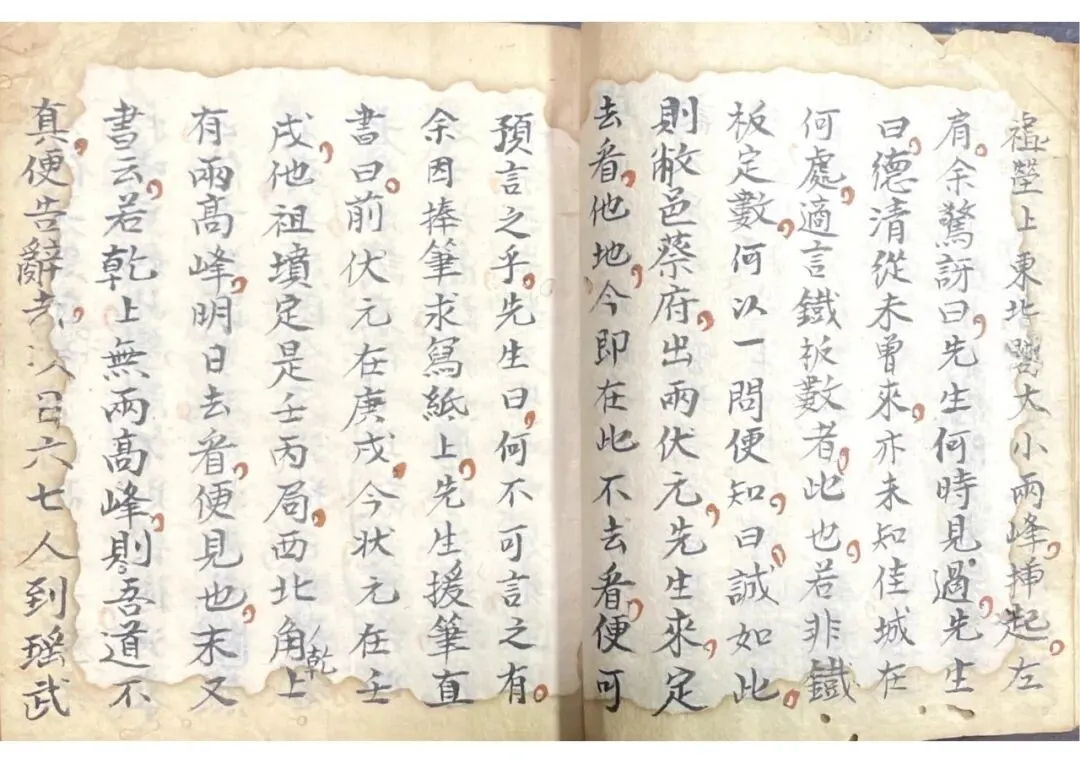 祖塋上東北艮大小兩峰插起左
肩余驚訝曰先生何時見過先生
曰德清從未曾來亦未知佳城在
何處適言鐵板數者此也若非鐵
板定數何以一問便知曰誠如此
則敝邑蔡府出兩伏元先生來定
去看他地今即在此不去看便可
預言之乎先生曰何不可言之有
余因捧筆求寫紙上先生援筆直
書曰前伏元在庚戌今状元在壬
戌他祖墳定是壬丙局西北角乾上
有兩高峰明日去看便見也末又
書云若乾上無兩高峰則吾道不
真便告辭去次日六七人到瑶武